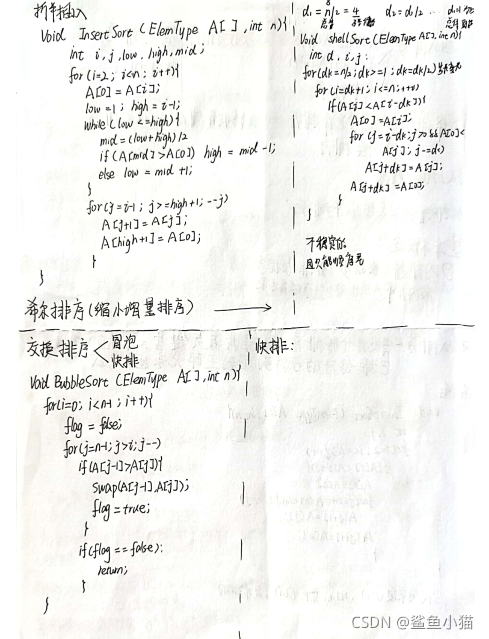 折半插入
Void InsertSort (ElemType A[], int n){
int i, j, low, high, mid;
for(i=2; i<n; i++){
A[0]=A[i];
low=1; high=i-1;
while(low<=high){
mid=(low+high)/2
if(A[mid]>A[0]) high=mid-1;
else low=mid+1;
}
for(j=i-1; j>=high+1; --j)
A[j+1]=A[j];
A[high+1]=A[0];
}
}
希尔排序(缩小增量排序)
d₁=n/2=4
d₂=d₁/2 ...
Void shellSort(ElemType A[], int n){
int d, i, j;
for(dk=n/2; dk>=1; dk=dk/2)
for(i=dk+1; i<=n; i++)
if(A[i]<A[i-dk]){
A[0]=A[i];
for(j=i-dk; j>0&&A[0]<
A[j]; j-=dk)
A[j+dk]=A[j];
A[j+dk]=A[0];
}
}
不稳定的
且只能顺序表
交换排序<冒泡
快排
Void BubbleSort (ElemType A[], int n){
for(i=0; i<n-1; i++){
flag=false;
for(j=n-1; j>i; j--)
if(A[j-1]>A[j]){
swap(A[j-1],A[j]);
flag=true;
}
if(flag==false):
return;
}
}
快排:
CSDN @鲨鱼小猫